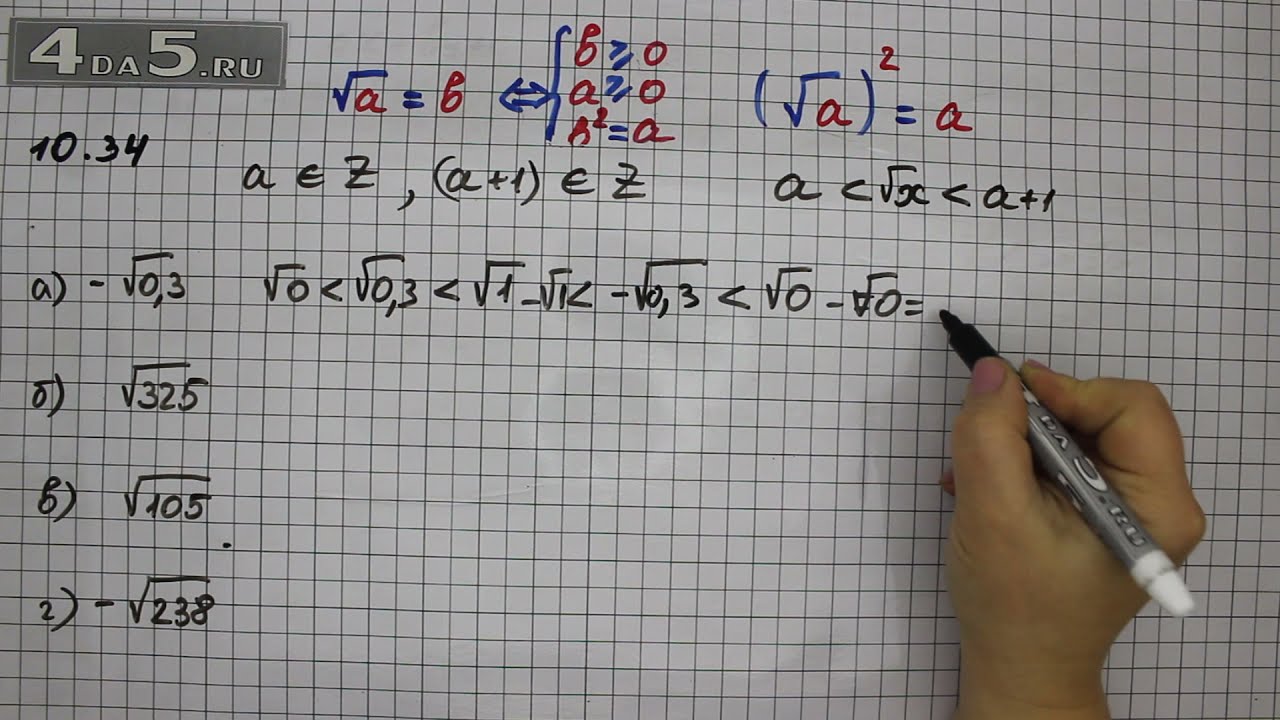 4DA5.RU
√a = b ⇔ { b ⩾ 0
a ⩾ 0
b² = a
(√a)² = a
10.34
a ∈ Z , (a+1) ∈ Z a < √x < a+1
а) -√0,3 √0 < √0,3 < √1 -√1 < -√0,3 < √0 -√0 =
б) √325
в) √105
г) -√238